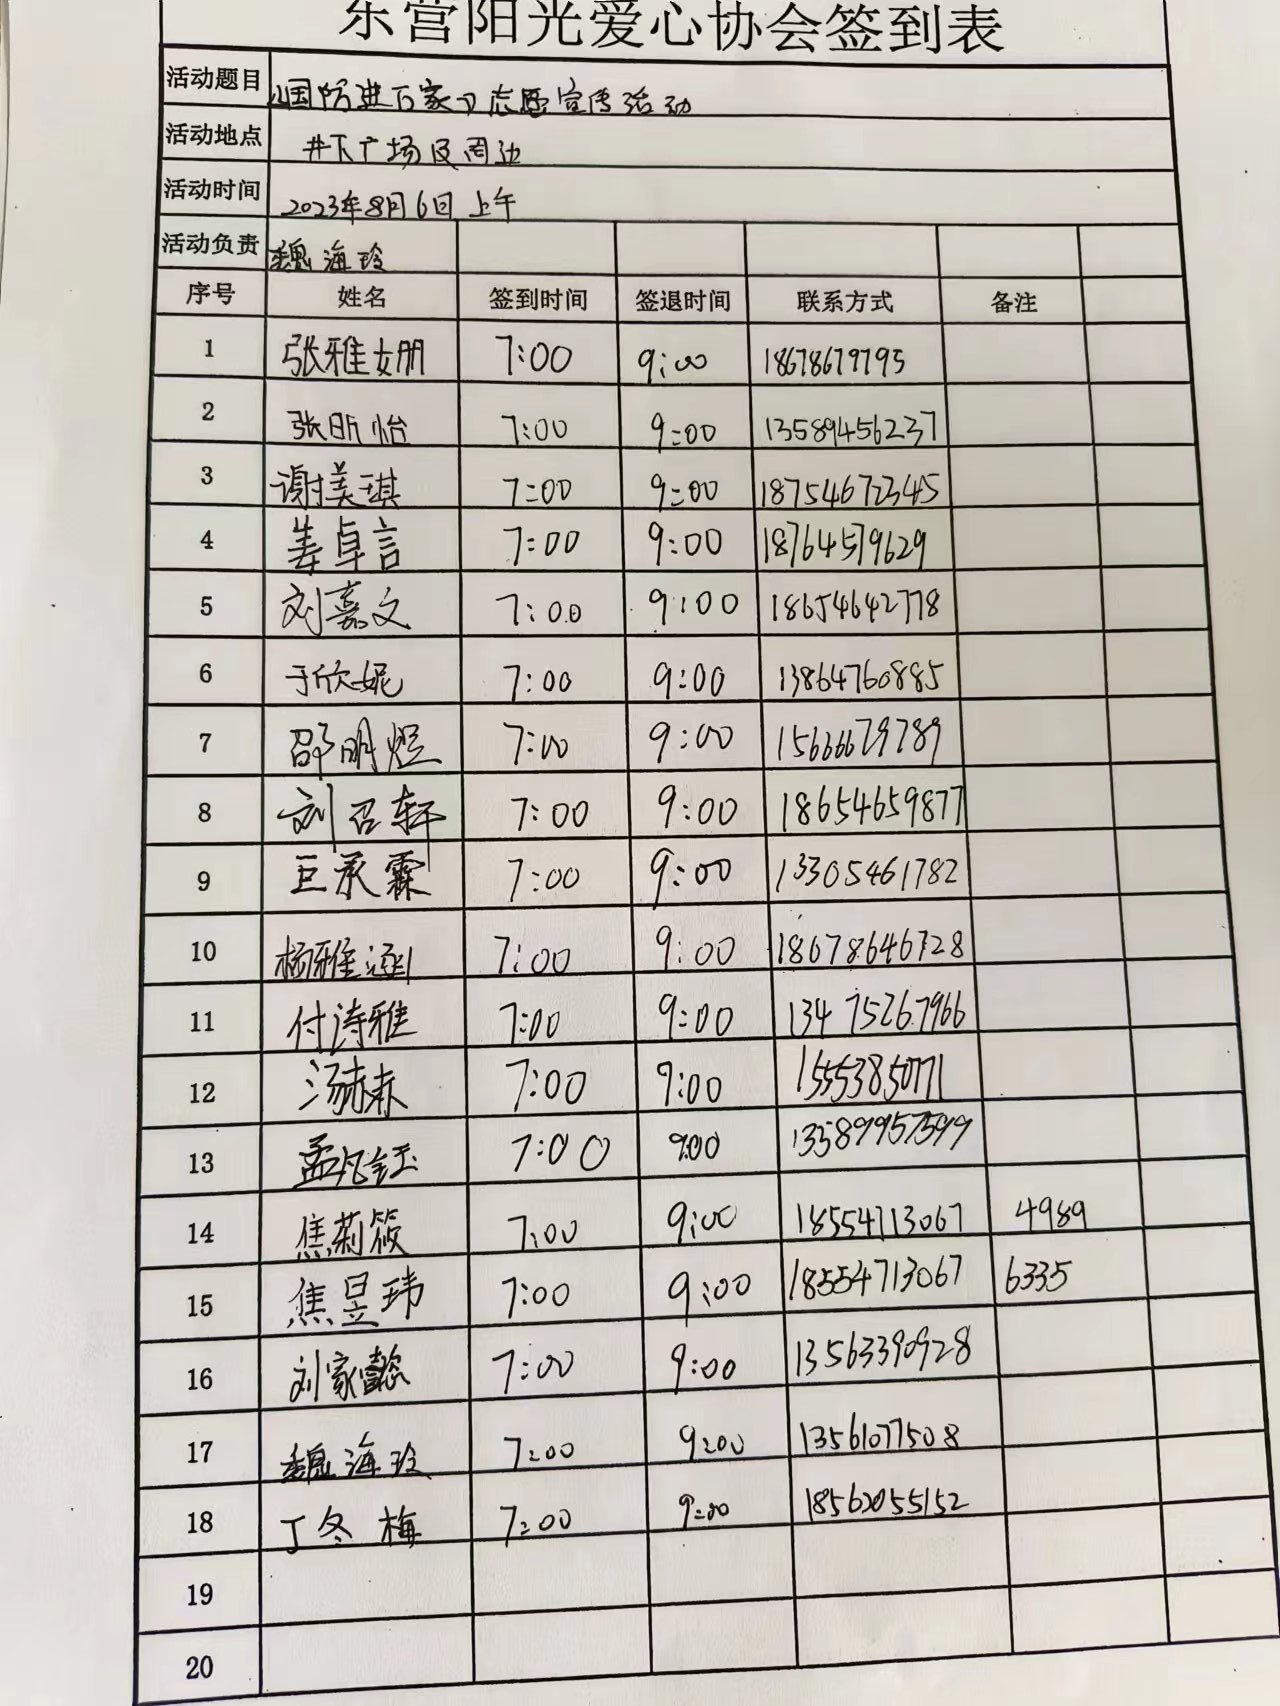 东营阳光爱心协会签到表
活动题目 《国防进万家》志愿宣传活动
活动地点 井下广场及周边
活动时间 2023年8月6日 上午
活动负责 魏海玲
序号 姓名 签到时间 签退时间 联系方式 备注
1 张雅女朋 7:00 9:00 18678679795
2 张昕怡 7:00 9:00 13589456237
3 谢美琪 7:00 9:00 18754672345
4 姜卓言 7:00 9:00 18764579629
5 刘嘉文 7:00 9:00 18654642778
6 于欣妮 7:00 9:00 13864760885
7 邵明煜 7:00 9:00 15666679789
8 刘召轩 7:00 9:00 18654659877
9 巨承霖 7:00 9:00 13305461782
10 杨雅涵 7:00 9:00 18678646728
11 付诗雅 7:00 9:00 13475267966
12 7:00 9:00 15553850771
13 孟凡钰 7:00 9:00 13589957599
14 焦莉筱 7:00 9:00 18554713067 4989
15 焦昱玮 7:00 9:00 18554713067 6335
16 刘家懿 7:00 9:00 13563390928
17 魏海玲 7:00 9:00 13561077508
18 丁冬梅 7:00 9:00 18562055152
19
20